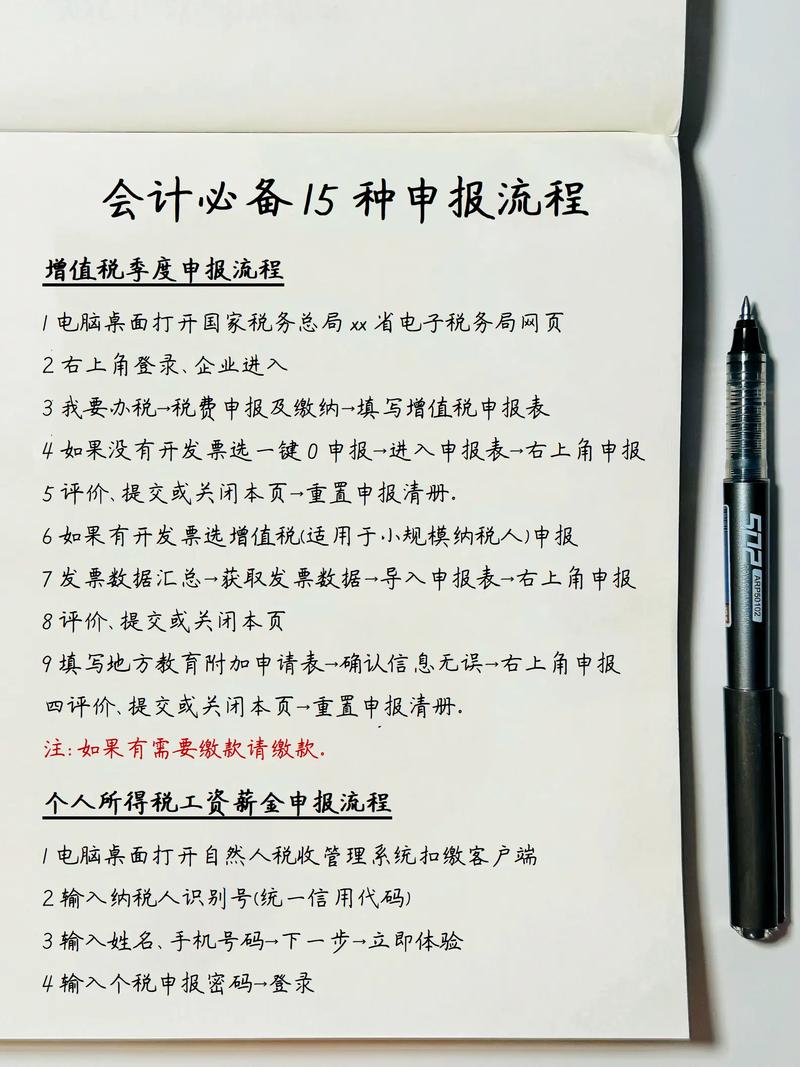 会计必备15种申报流程
增值税季度申报流程
1电脑桌面打开国家税务总局xx省电子税务局网页
2右上角登录、企业进入
3我要办税→税费申报及缴纳→填写增值税申报表
4如果没有开发票选一键0申报→进入申报表→右上角申报
5评价、提交或关闭本页→重置申报清册.
6如果有开发票选增值税(适用于小规模纳税人)申报
7发票数据汇总→获取发票数据→导入申报表→右上角申报
8评价、提交或关闭本页
9填写地方教育附加申请表→确认信息无误→右上角申报
四评价、提交或关闭本页→重置申报清册.
注:如果有需要缴款请缴款.
个人所得税工资薪金申报流程
1电脑桌面打开自然人税收管理系统扣缴客户端
2输入纳税人识别号(统一信用代码)
3输入姓名、手机号码→下一步→立即体验
4输入个税申报密码→登录
502
ARP50102